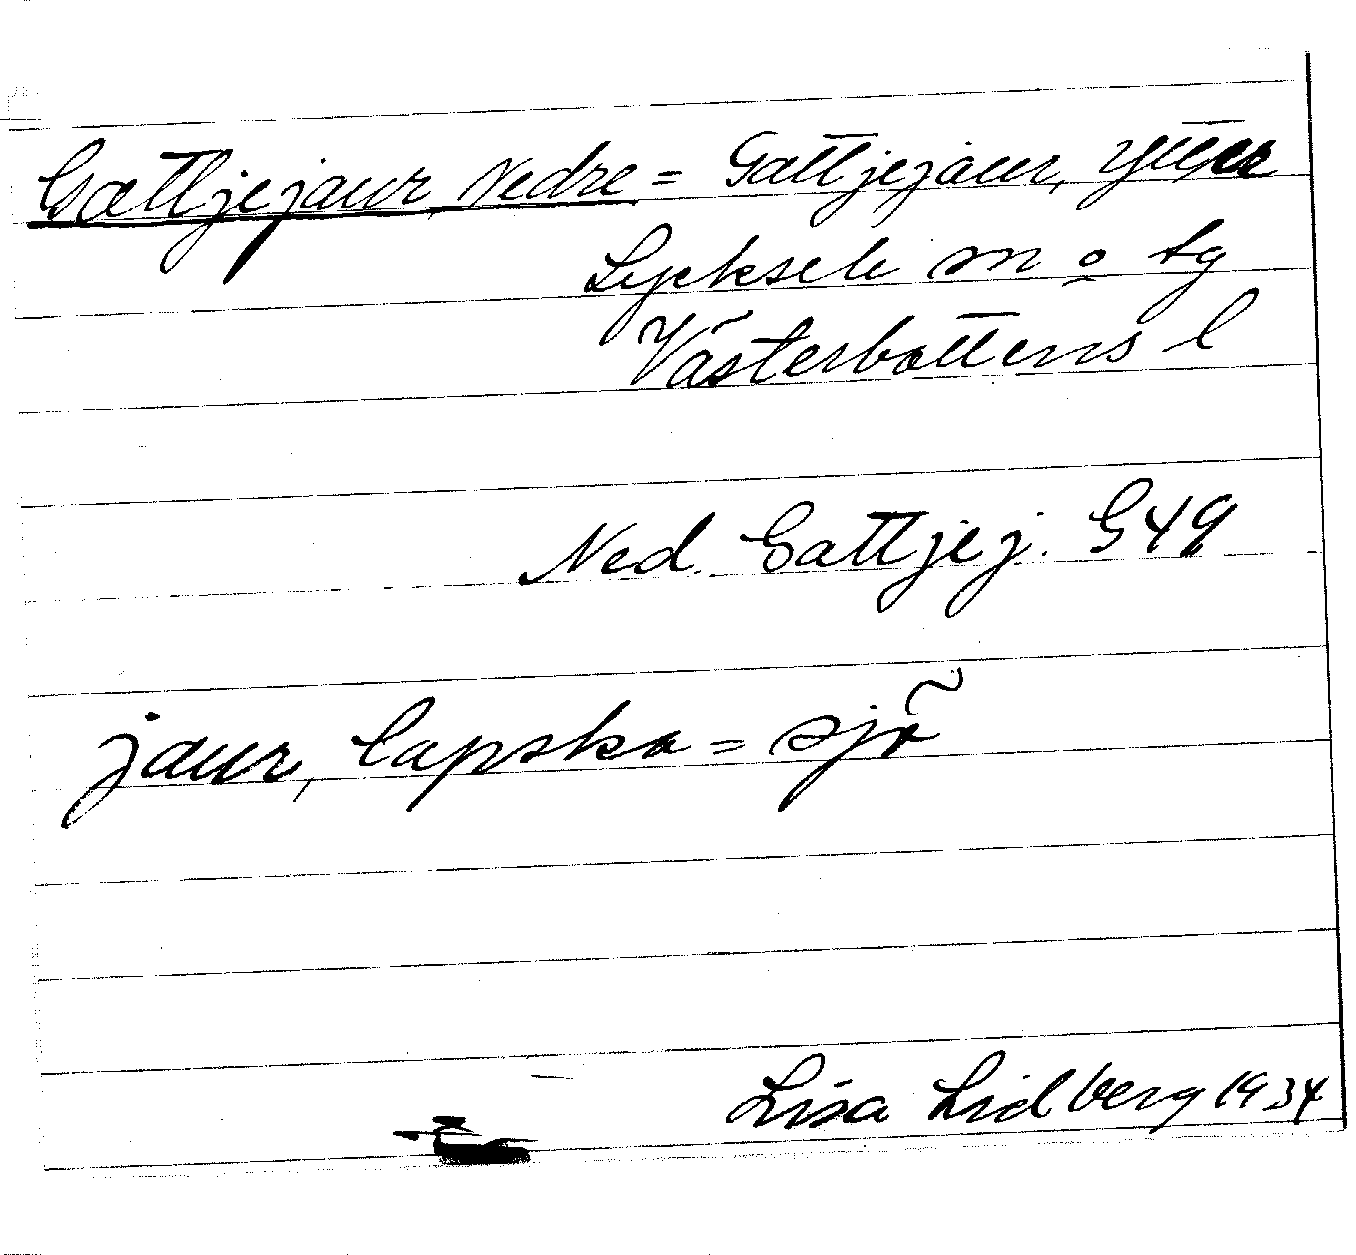 Gattjejaur, Nedre = Gattjejaur, Yttre
Lycksele sn o tg
Västerbottens l
Ned. Gattjej. G49
jaur, lapska = sjö
Lisa Lidberg 1934